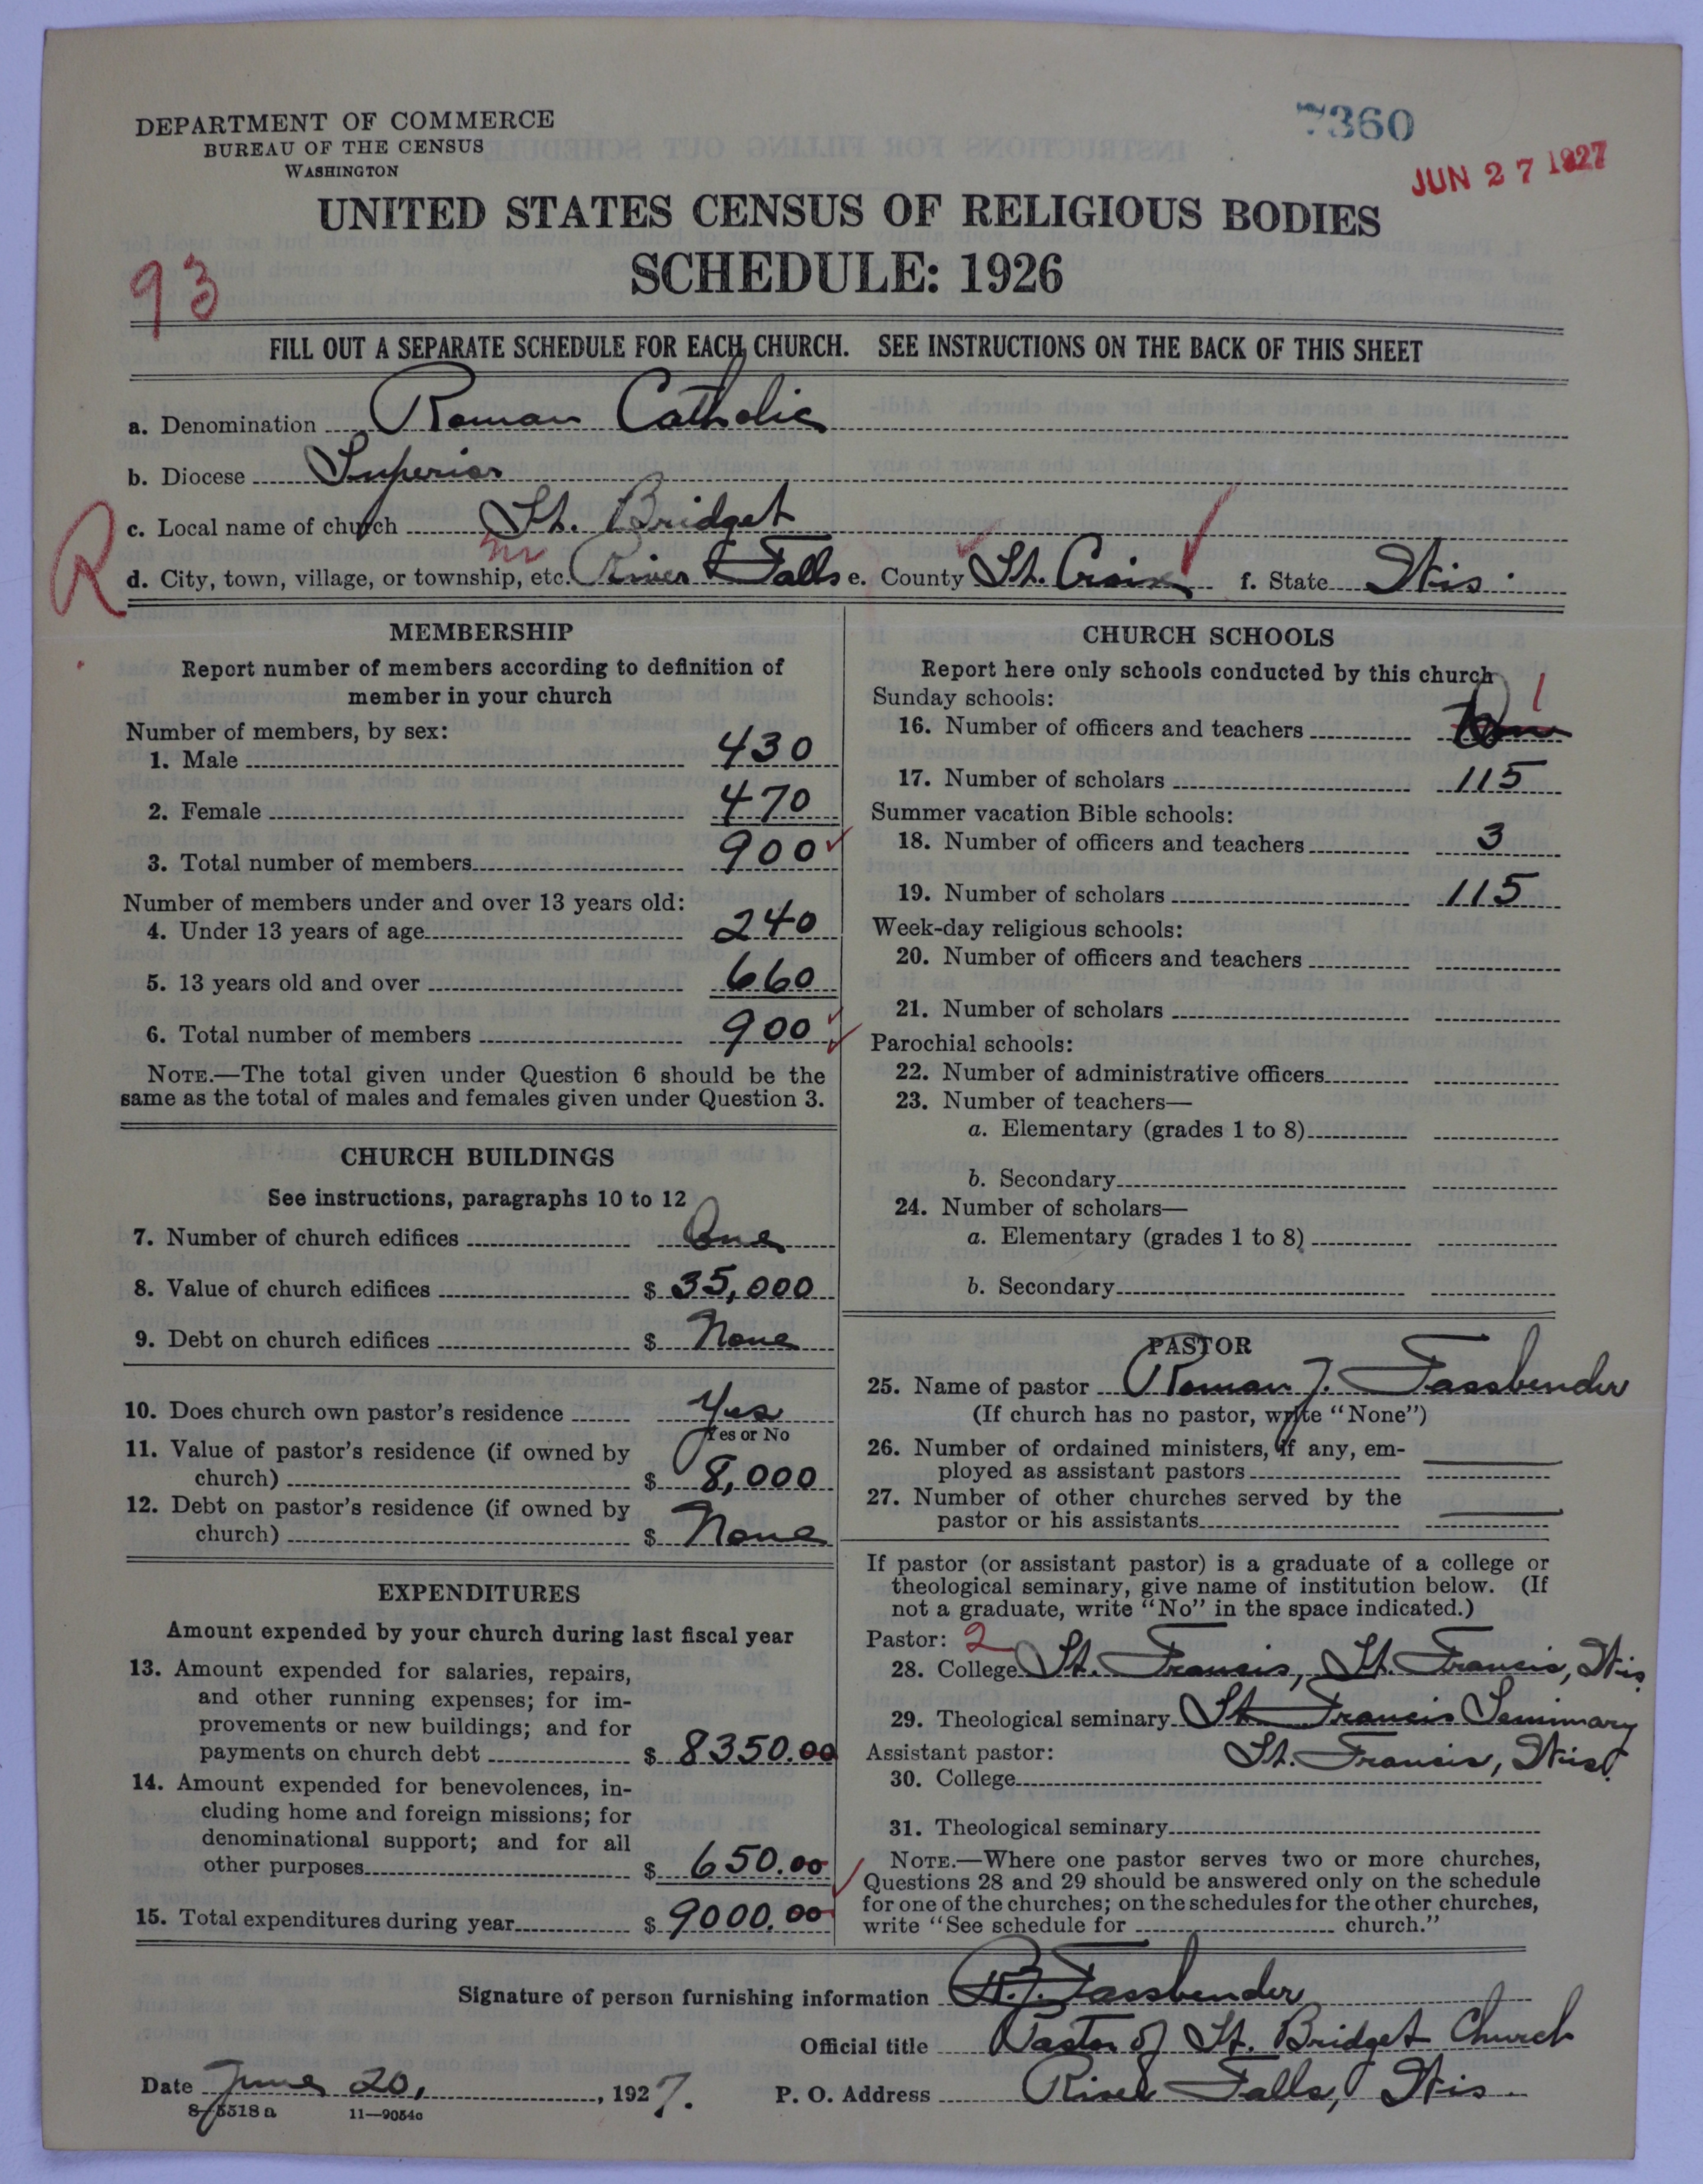 DEPARTMENT OF COMMERCE
BUREAU OF THE CENSUS
WASHINGTON
7360
JUN 27 1927
UNITED STATES CENSUS OF RELIGIOUS BODIES
SCHEDULE: 1926
93
FILL OUT A SEPARATE SCHEDULE FOR EACH CHURCH. SEE INSTRUCTIONS ON THE BACK OF THIS SHEET
a. Denomination Roman Catholic
b. Diocese Superior
c. Local name of church St. Bridget
R
d. City, town, village, or township, etc. River Falls e. County St. Croix f. State Wis.
MEMBERSHIP
Report number of members according to definition of
member in your church
Number of members, by sex:
1. Male 430
2. Female 470
3. Total number of members 900
Number of members under and over 13 years old:
4. Under 13 years of age 240
5. 13 years old and over 660
6. Total number of members 900
NOTE.—The total given under Question 6 should be the
same as the total of males and females given under Question 3.
CHURCH BUILDINGS
See instructions, paragraphs 10 to 12
7. Number of church edifices One
8. Value of church edifices $ 35,000
9. Debt on church edifices $ None
10. Does church own pastor's residence Yes
Yes or No
11. Value of pastor's residence (if owned by
church) $ 8,000
12. Debt on pastor's residence (if owned by
church) $ None
EXPENDITURES
Amount expended by your church during last fiscal year
13. Amount expended for salaries, repairs,
and other running expenses; for im-
provements or new buildings; and for
payments on church debt $ 8350.00
14. Amount expended for benevolences, in-
cluding home and foreign missions; for
denominational support; and for all
other purposes $ 650.00
15. Total expenditures during year $ 9000.00
CHURCH SCHOOLS
Report here only schools conducted by this church
Sunday schools:
16. Number of officers and teachers 1
17. Number of scholars 115
Summer vacation Bible schools:
18. Number of officers and teachers 3
19. Number of scholars 115
Week-day religious schools:
20. Number of officers and teachers
21. Number of scholars
Parochial schools:
22. Number of administrative officers
23. Number of teachers—
a. Elementary (grades 1 to 8)
b. Secondary
24. Number of scholars—
a. Elementary (grades 1 to 8)
b. Secondary
PASTOR
25. Name of pastor Roman J. Fassbender
(If church has no pastor, write "None")
26. Number of ordained ministers, if any, em-
ployed as assistant pastors
27. Number of other churches served by the
pastor or his assistants
If pastor (or assistant pastor) is a graduate of a college or
theological seminary, give name of institution below. (If
not a graduate, write "No" in the space indicated.)
Pastor: 2
28. College St. Francis, St. Francis, Wis.
29. Theological seminary St. Francis Seminary
Assistant pastor: St. Francis, Wis.
30. College
31. Theological seminary
NOTE.—Where one pastor serves two or more churches,
Questions 28 and 29 should be answered only on the schedule
for one of the churches; on the schedules for the other churches,
write "See schedule for church."
Signature of person furnishing information R.J. Fassbender
Official title Pastor of St. Bridget Church
Date June 20, 1927. P. O. Address River Falls, Wis.
8-5518 a 11—9054c